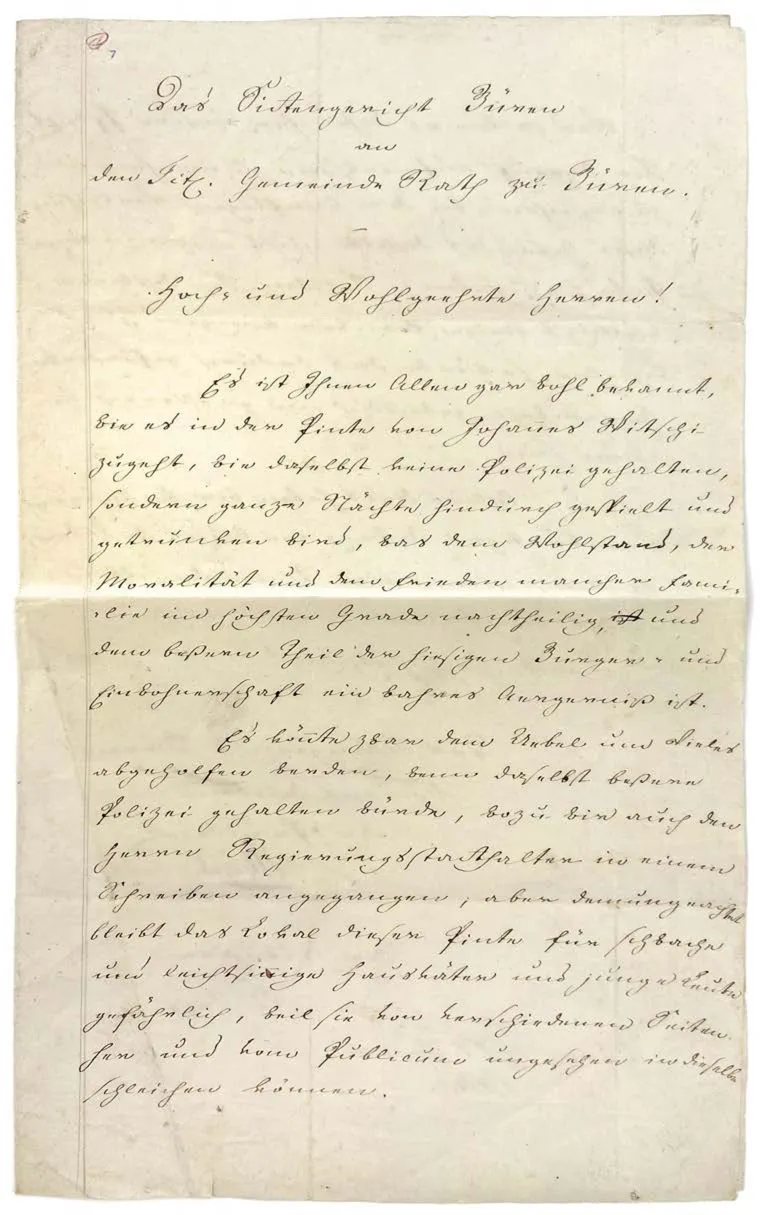 Das Sittengericht Büren
an
den Tit. Gemeinde Rath zu Büren.
Hoch- und Wohlgeehrte Herren!
Es ist Ihnen Allen gar wohl bekannt,
wie es in der Pinte von Johannes Witschi
zugeht, wie daselbst keine Polizei gehalten,
sondern ganze Nächte hindurch gespielt und
getrunken wird, was dem Wohlstand, der
Moralität und dem Frieden mancher Fami-
-lie im höchsten Grade nachtheilig, ist und
dem beßern Theil der hiesigen Burger- und
Einwohnerschaft ein wahres Aergerniß ist.
Es könnte zwar dem Uebel um Vieles
abgeholfen werden, wenn daselbst beßere
Polizei gehalten würde, wozu wir auch den
Herrn Regierungsstatthalter in einem
Schreiben angegangen; aber demungeachtet
bleibt das Lokal dieser Pinte für schwache
und leichtsinnige Hausväter und junge Leute
gefährlich, weil sie von verschiedenen Seiten
her und vom Publicum ungesehen in dieselbe
schleichen können.